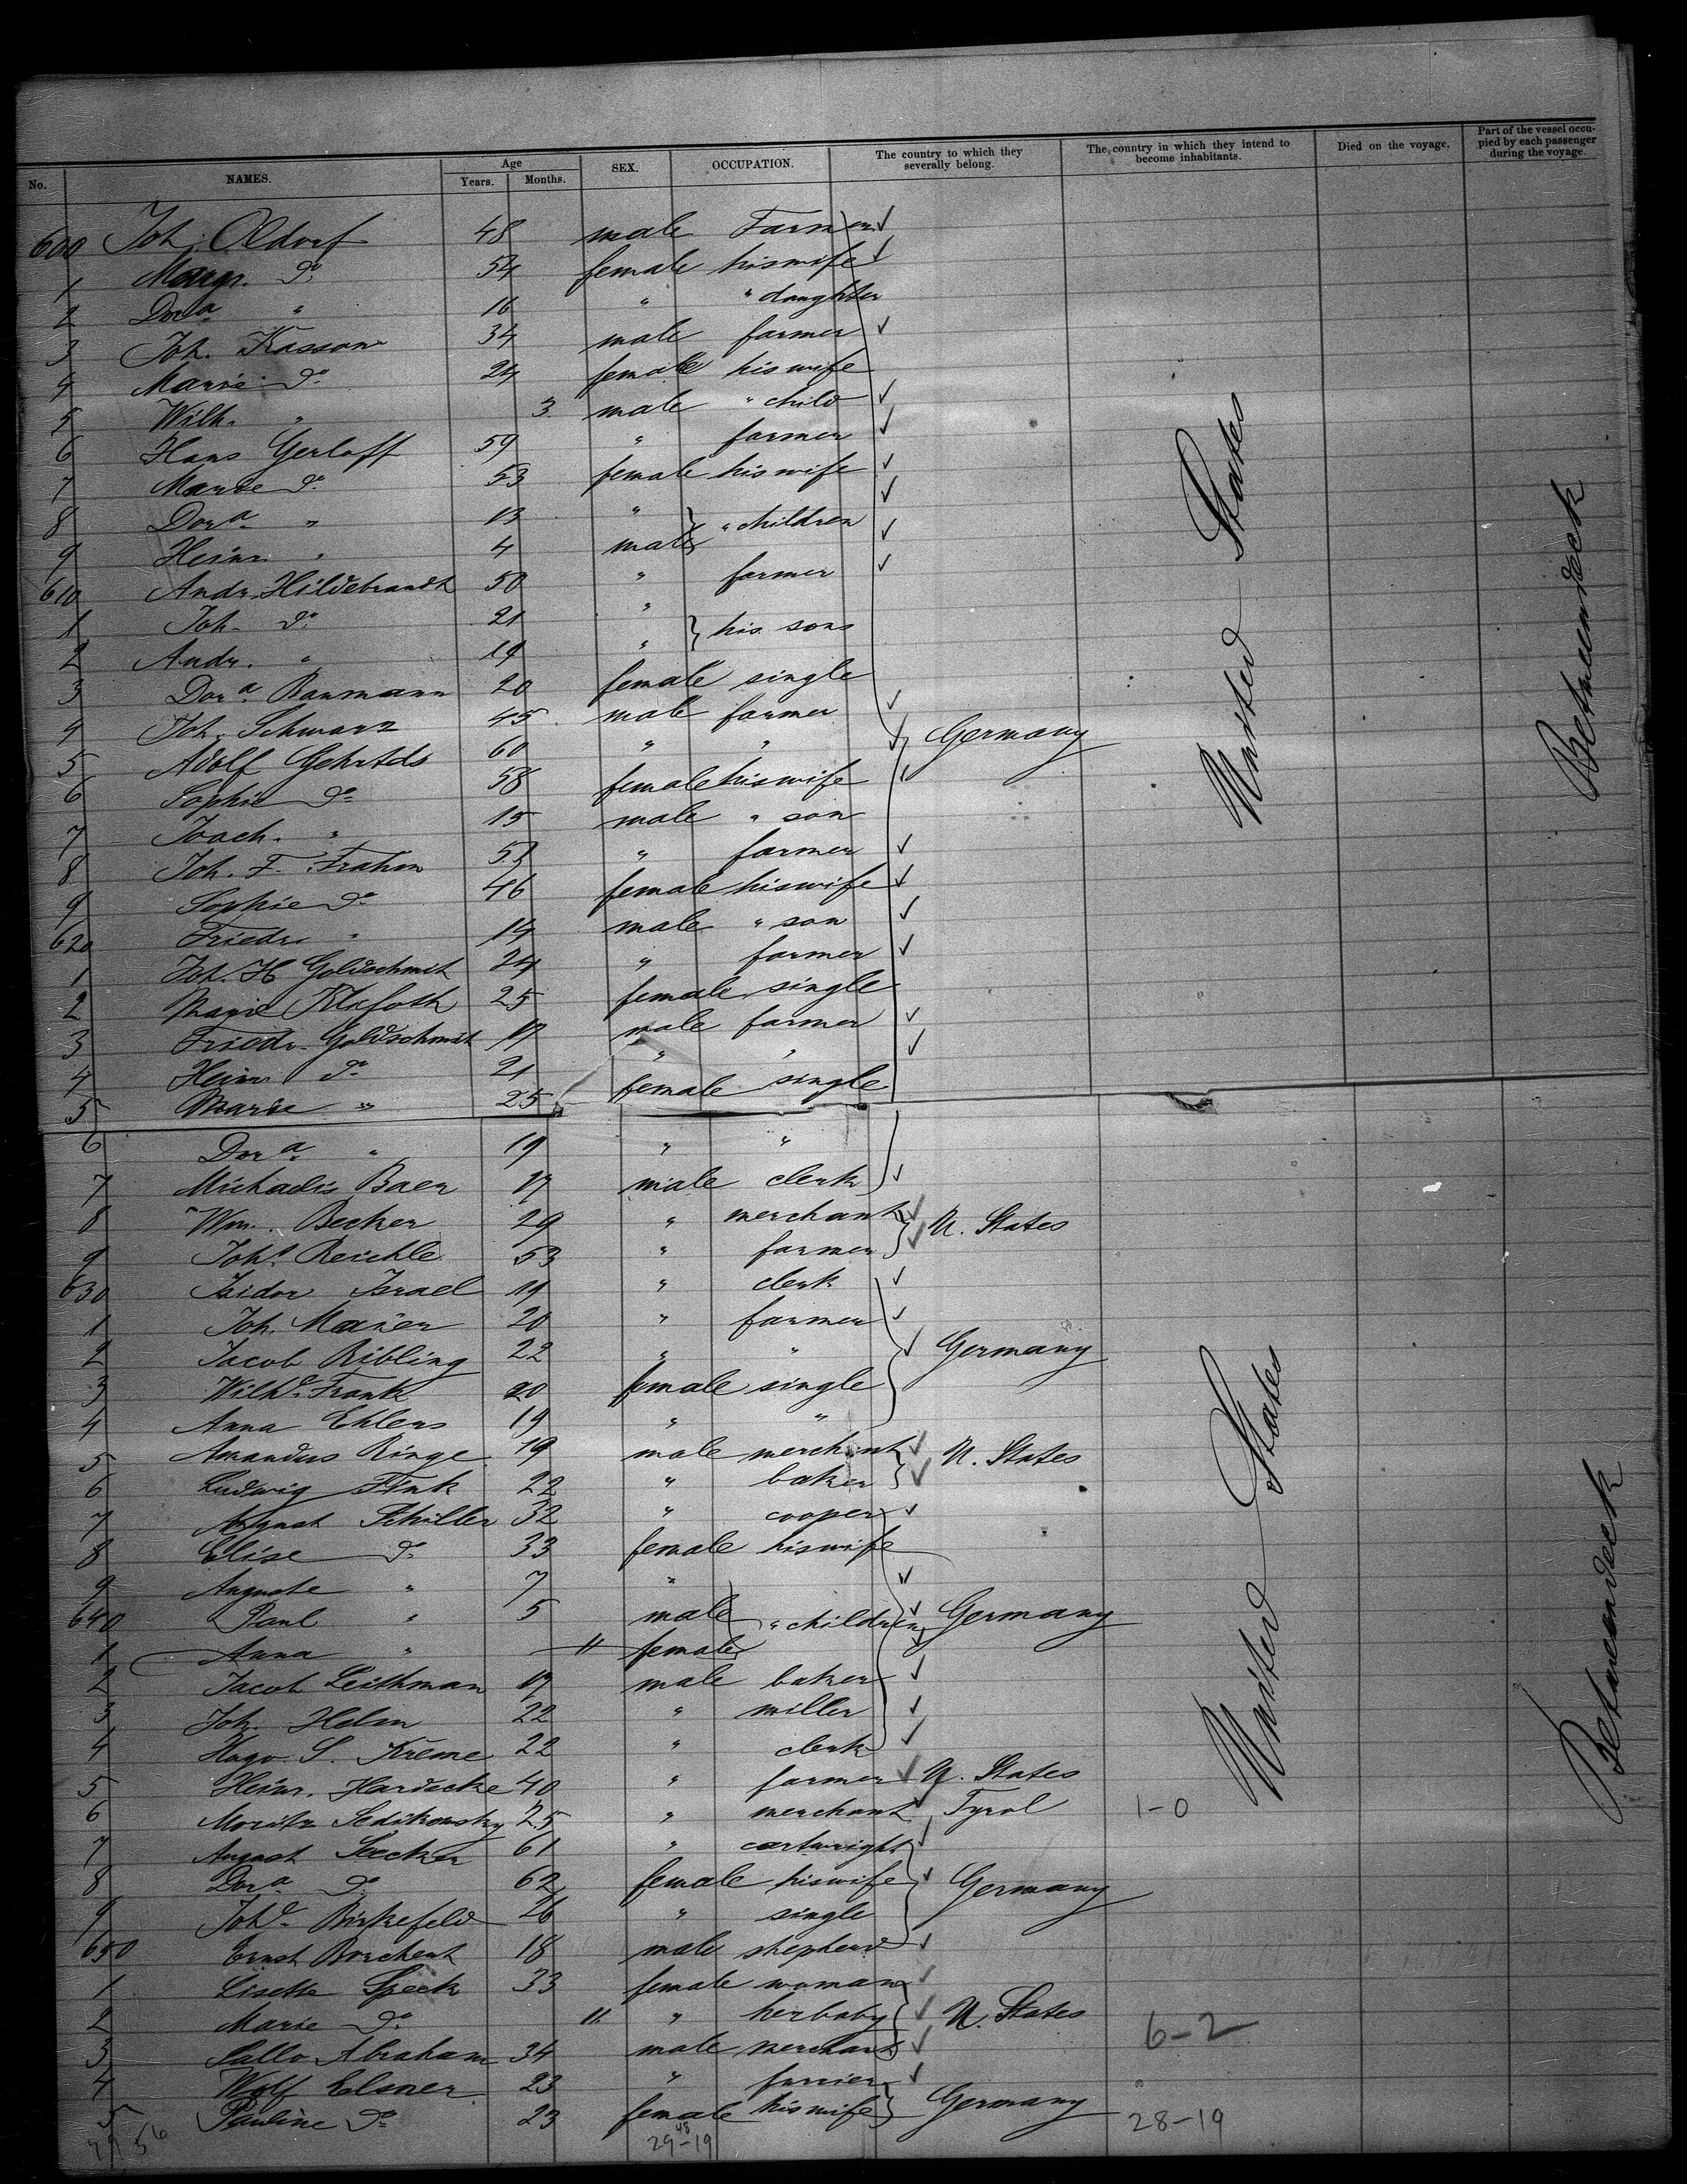 No. NAMES. Age Years. Months. SEX. OCCUPATION. The country to which they severally belong. The country in which they intend to become inhabitants. Died on the voyage. Part of the vessel occupied by each passenger during the voyage.
600 Joh. Oldorf 48 male Farmer
1 Margr. do 54 female his wife
2 Dora " 16 " " daughter
3 Joh. Kassow 34 male farmer
4 Marie do 24 female his wife
5 Wilh. " 3 male " child
6 Hans Gerloff 59 " farmer
7 Marie do 53 female his wife
8 Dora " 13 " " children
9 Heinr. " 4 male
610 Andr. Hildebrandt 50 " farmer
1 Joh. do 21 " his sons
2 Andr. " 19 "
3 Dora Baumann 20 female single
4 Joh. Schwarz 45 male farmer Germany United States Betweendeck
5 Adolf Gehrtds 60 " "
6 Sophie do 58 female his wife
7 Joach. " 15 male " son
8 Joh. F. Frahm 53 " farmer
9 Sophie do 46 female his wife
620 Friedr. " 14 male " son
1 Joh. H Goldschmit 24 " farmer
2 Marie Klafoth 25 female single
3 Friedr. Goldschmit 17 male farmer
4 Heinr. do 21 " "
5 Marie " 25 female single
6 Dora " 19 " "
7 Michadis Baer 17 male clerk
8 Wm. Becker 29 " merchant U. States
9 Joh. Reichle 53 " farmer
630 Isidor Israel 19 " clerk
1 Joh. Maier 20 " farmer
2 Jacob Ribling 22 " " Germany
3 Wilhe. Frank 20 female single
4 Anna Ehlers 19 " "
5 Amandus Ringe 19 male merchant U. States
6 Ludwig Fink 22 " baker
7 August Schiller 32 " cooper
8 Elise do 33 female his wife
9 Auguste " 7 "
640 Paul " 5 male " children Germany United States Betweendeck
1 Anna " 11 female
2 Jacob Leithman 17 male baker
3 Joh. Helm 22 " miller
4 Hugo S. Kreme 22 " clerk
5 Heinr. Hardecke 40 " farmer U. States
6 Moritz Sedikowsky 25 " merchant Tyrol 1-0
7 August Secker 61 " cartwright
8 Dora do 62 female his wife Germany
9 Johe. Birkefeld 26 " single
650 Ernst Borchert 18 male shepherd
1 Lisette Speck 33 female woman
2 Marie do 11 " her baby U. States 6-2
3 Sallo Abraham 34 male merchant
4 Wolf Elsner 23 " furrier
5 Pauline do 23 female his wife Germany 28-19
56 48
29-19